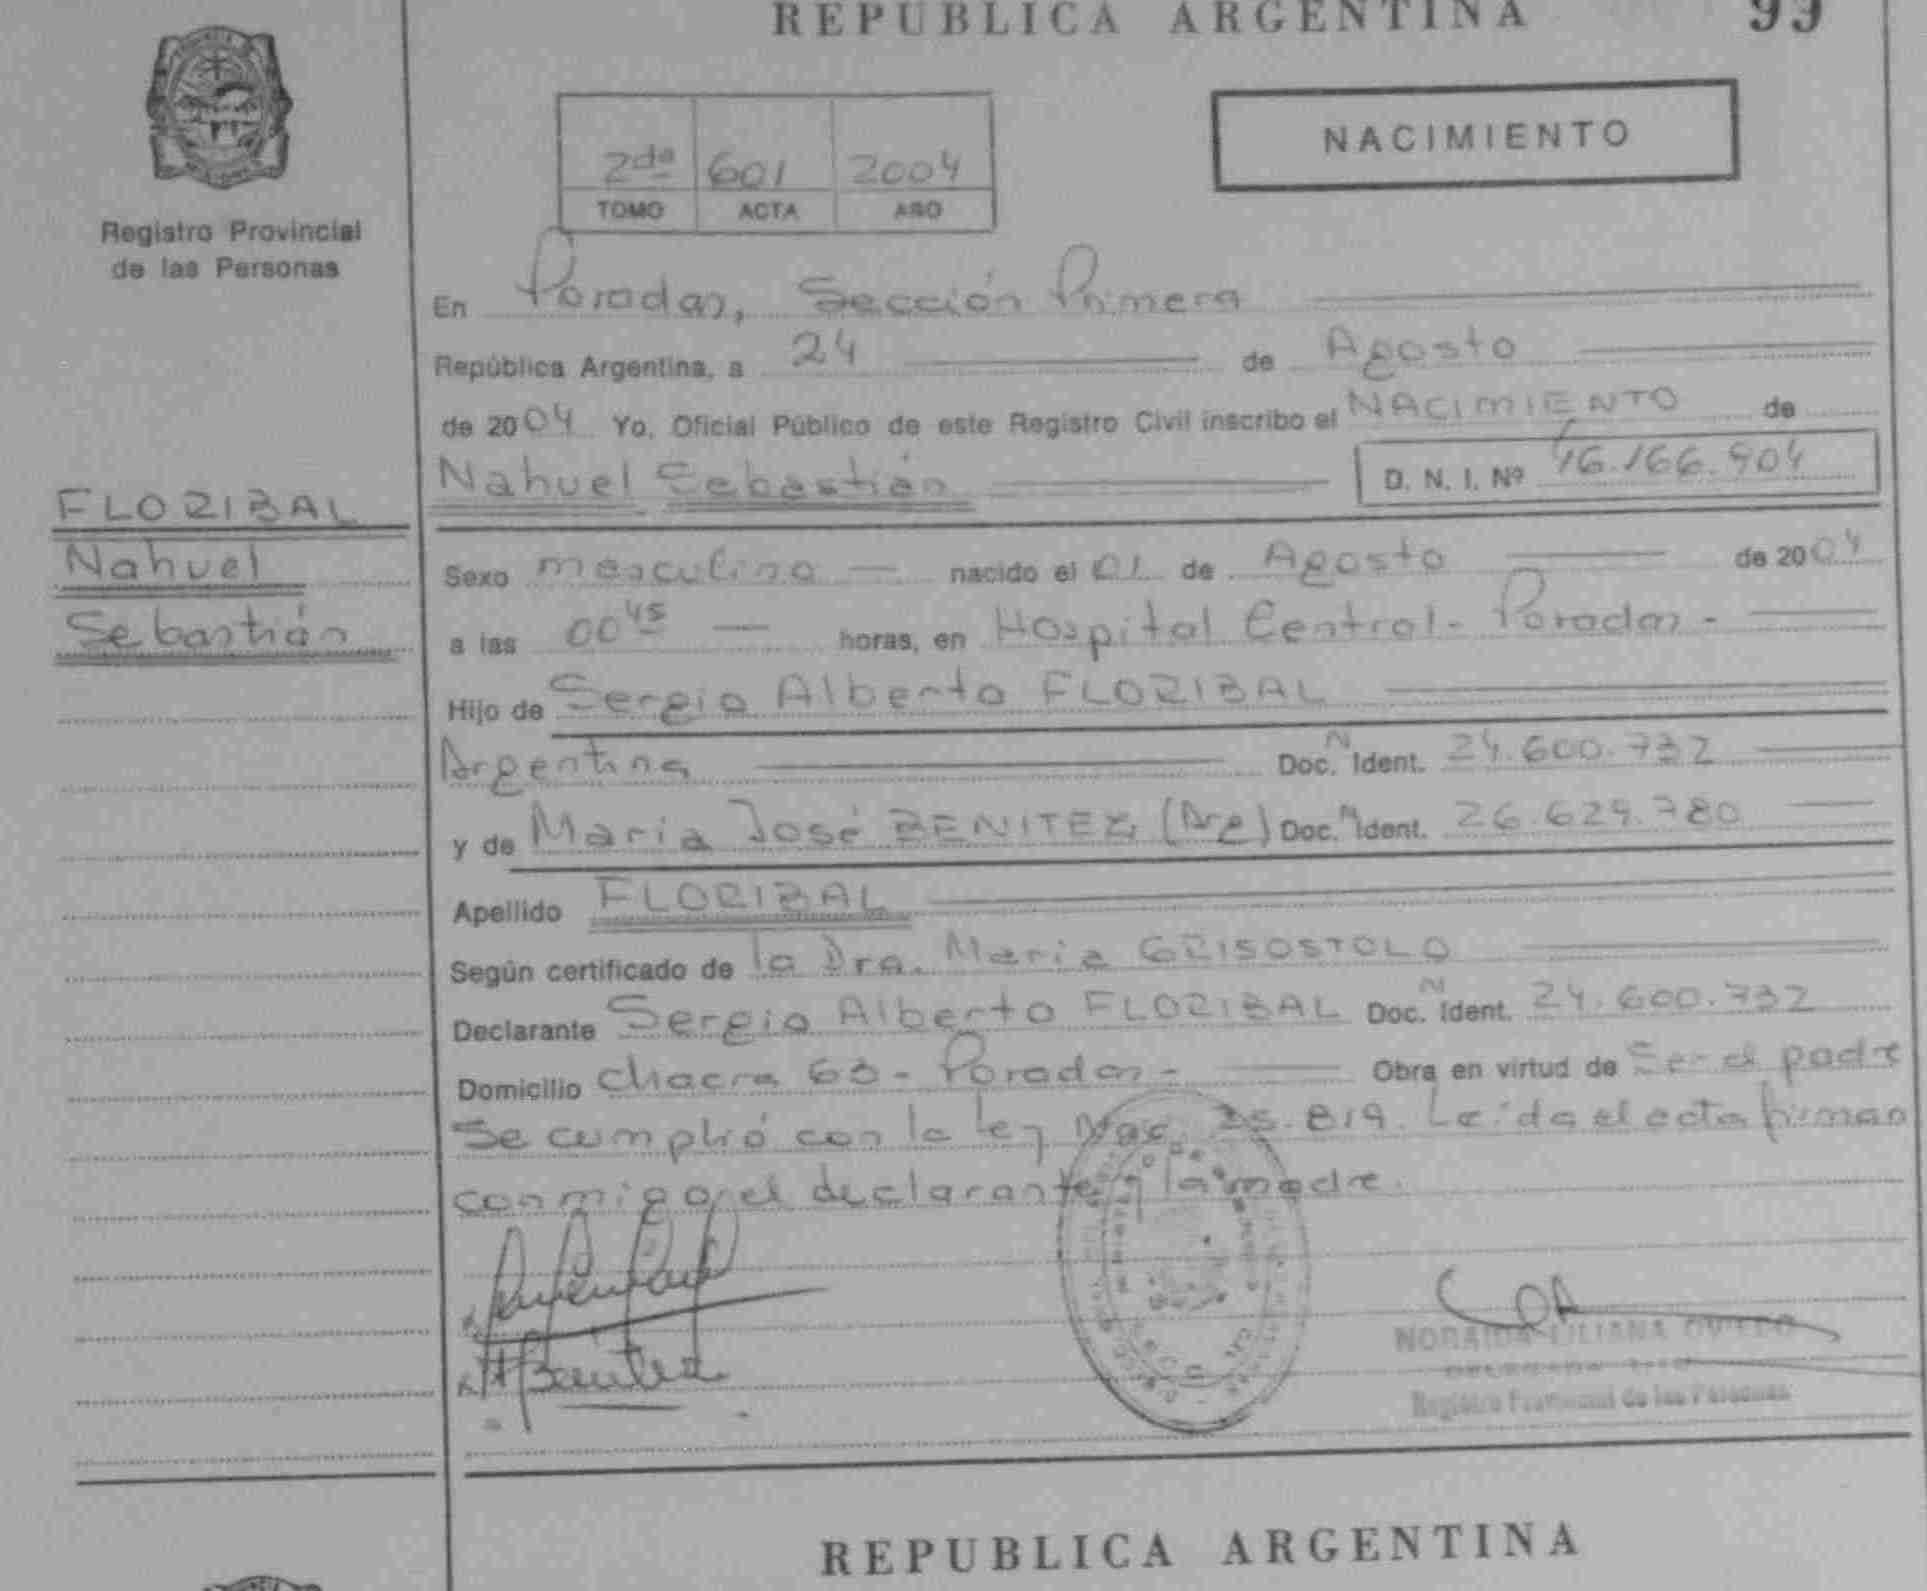 REPUBLICA ARGENTINA 99
Registro Provincial
de las Personas
2da 601 2004
TOMO ACTA AÑO
NACIMIENTO
En Posadas, Sección Primera
República Argentina, a 24 de Agosto
de 2004 Yo, Oficial Público de este Registro Civil inscribo el NACIMIENTO de
Nahuel Sebastián D. N. I. Nº 46.166.904
FLORIBAL
Nahuel
Sebastián
Sexo masculino nacido el 01 de Agosto de 2004
a las 00 45 horas, en Hospital Central - Posadas -
Hijo de Sergio Alberto FLORIBAL
Argentina Doc. N Ident. 24.600.732
y de María José BENITEZ (Arg) Doc. N Ident. 26.629.780
Apellido FLORIBAL
Según certificado de la Dra. María GRISOSTOLO
Declarante Sergio Alberto FLORIBAL Doc. N Ident. 24.600.732
Domicilio Chacra 63 - Posadas - Obra en virtud de Ser el padre
Se cumplió con la ley Nac. 25.819. Leída el acta firman
conmigo, el declarante y la madre.
Benitez
NORAIDA LILIANA OVIEDO
Registro Provincial de las Personas
REPUBLICA ARGENTINA